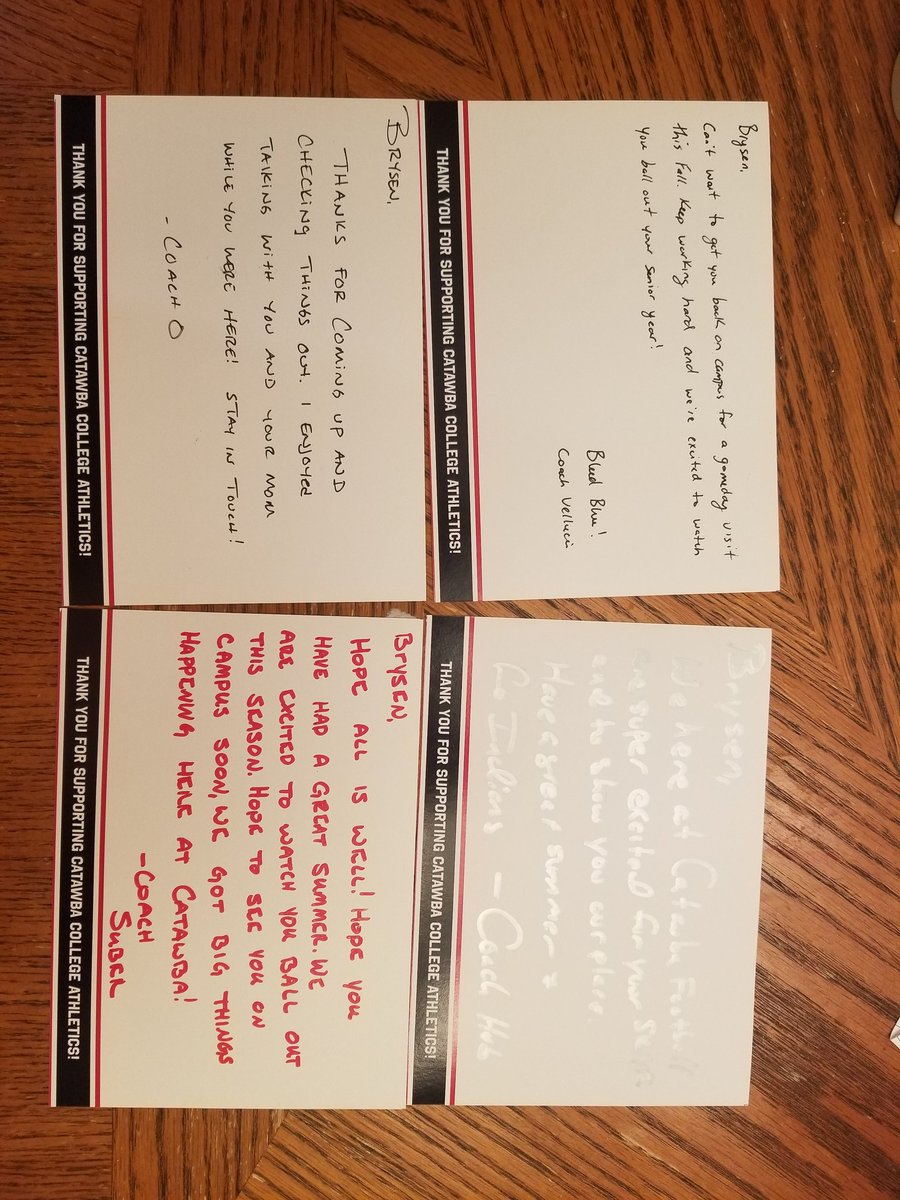 Brysen,
Can't wait to get you back on campus for a gameday visit
this Fall. Keep working hard and we're excited to watch
you ball out your senior year!
Bleed Blue!
Coach Vellucci
THANK YOU FOR SUPPORTING CATAWBA COLLEGE ATHLETICS!
Brysen,
We here at Catawba Football
are super excited for your
and to show you our place
Have a great summer
Go Indians - Coach
THANK YOU FOR SUPPORTING CATAWBA COLLEGE ATHLETICS!
BRYSEN,
THANKS FOR COMING UP AND
CHECKING THINGS OUT. I ENJOYED
TALKING WITH YOU AND YOUR MOM
WHILE YOU WERE HERE! STAY IN TOUCH!
- COACH O
THANK YOU FOR SUPPORTING CATAWBA COLLEGE ATHLETICS!
BRYSEN,
HOPE ALL IS WELL! HOPE YOU
HAVE HAD A GREAT SUMMER. WE
ARE EXCITED TO WATCH YOU BALL OUT
THIS SEASON. HOPE TO SEE YOU ON
CAMPUS SOON, WE GOT BIG THINGS
HAPPENING HERE AT CATAWBA!
-COACH
SUBER
THANK YOU FOR SUPPORTING CATAWBA COLLEGE ATHLETICS!